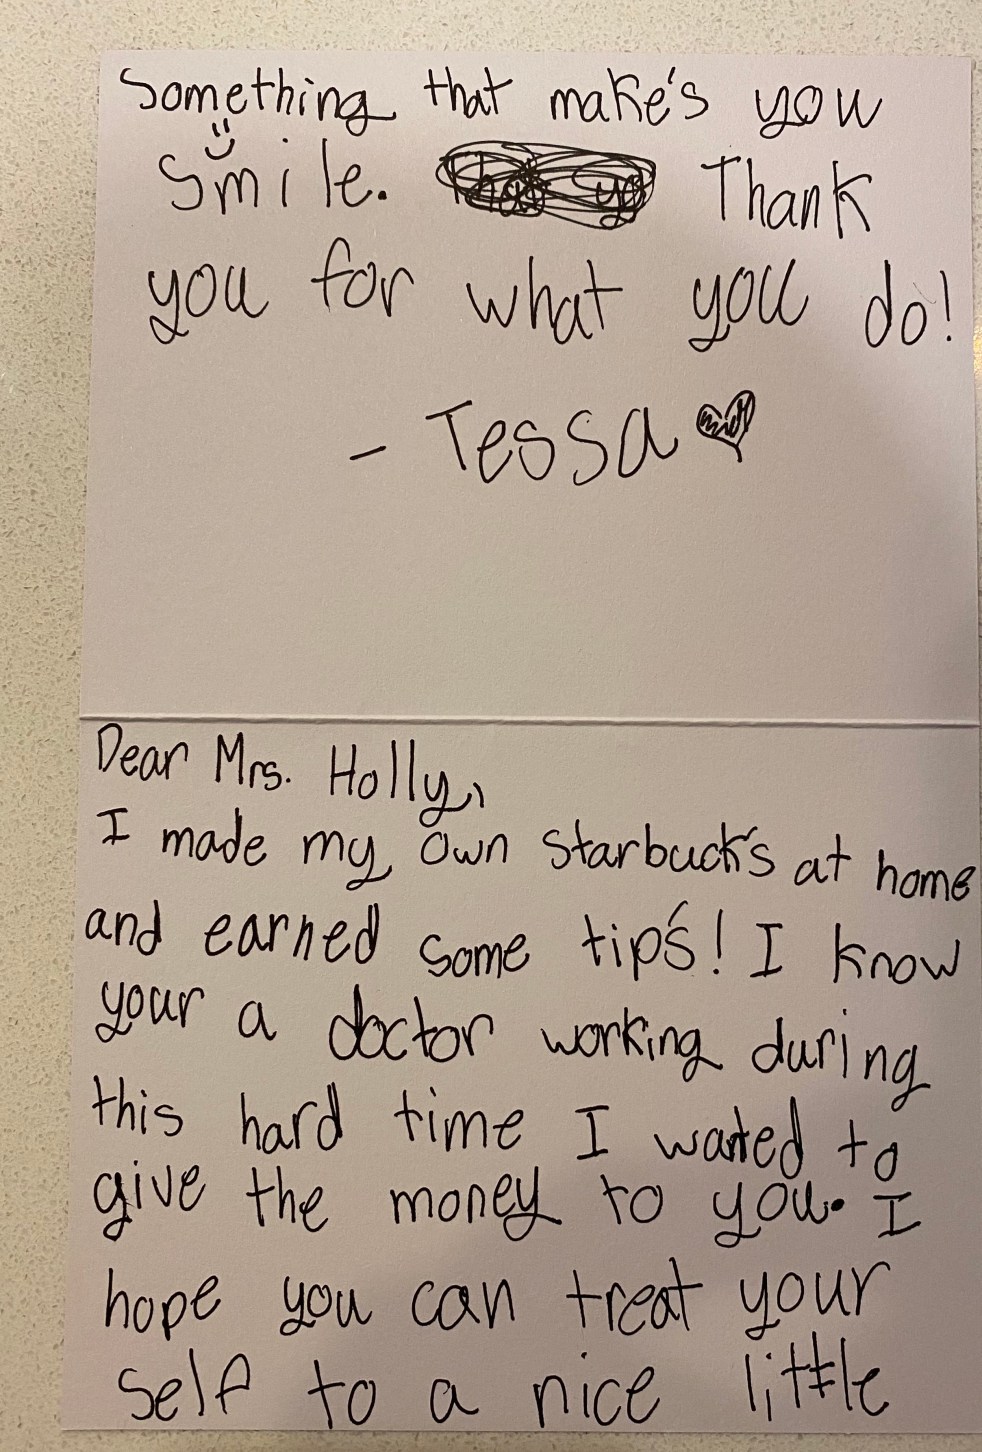 Dear Mrs. Holly,
I made my own Starbuck's at home
and earned some tip's! I know
your a doctor working during
this hard time I wanted to
give the money to you. I
hope you can treat your
self to a nice little
Something that make's you
smile. Thank
you for what you do!
- Tessa